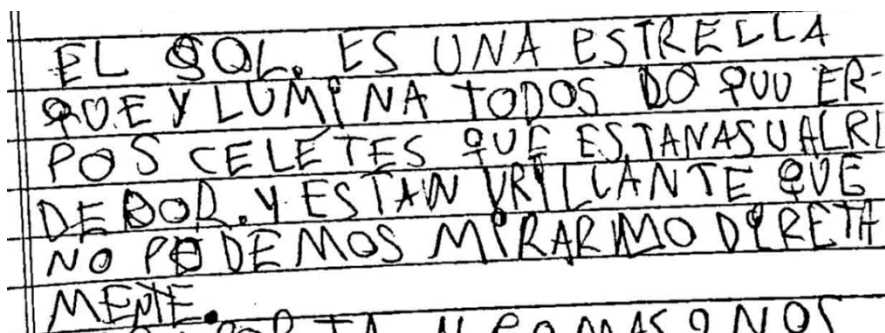 EL SOL. ES UNA ESTRELLA
QUE Y LUMINA TODOS DO QUU ER-
POS CELETES QUE ESTANASUALRE
DEDOR. Y ESTAN VRILLANTE QUE
NO PODEMOS MIRARMO DIRETA
MENTE.